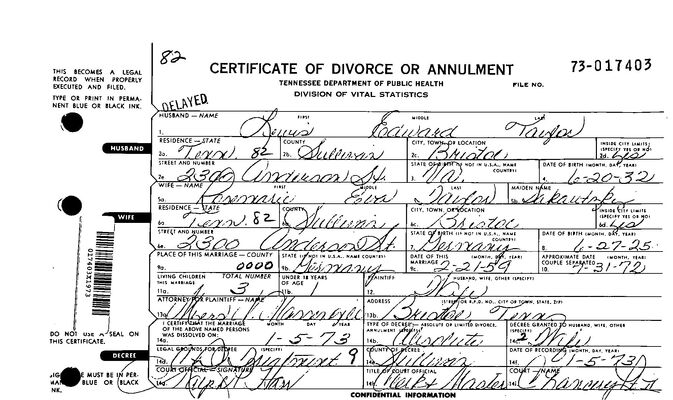 82
CERTIFICATE OF DIVORCE OR ANNULMENT 73-017403
TENNESSEE DEPARTMENT OF PUBLIC HEALTH FILE NO.
DIVISION OF VITAL STATISTICS
THIS BECOMES A LEGAL
RECORD WHEN PROPERLY
EXECUTED AND FILED.
TYPE OR PRINT IN PERMA-
NENT BLUE OR BLACK INK.
DELAYED
HUSBAND — NAME FIRST MIDDLE LAST
1. Lewis Edward Taylor
HUSBAND
RESIDENCE — STATE COUNTY CITY, TOWN, OR LOCATION INSIDE CITY LIMITS
(SPECIFY YES OR NO)
2a. Tenn. 82 2b. Sullivan 2c. Bristol 2d. yes
STREET AND NUMBER STATE OF BIRTH (IF NOT IN U.S.A., NAME COUNTRY) DATE OF BIRTH (MONTH, DAY, YEAR)
2e. 2300 Anderson St. 3. Va. 4. 6-20-32
WIFE — NAME FIRST MIDDLE LAST MAIDEN NAME
5a. Rosemarie Eva Taylor 5b.
WIFE
RESIDENCE — STATE COUNTY CITY, TOWN, OR LOCATION INSIDE CITY LIMITS
(SPECIFY YES OR NO)
6a. Tenn. 82 6b. Sullivan 6c. Bristol 6d. yes
STREET AND NUMBER STATE OF BIRTH (IF NOT IN U.S.A., NAME COUNTRY) DATE OF BIRTH (MONTH, DAY, YEAR)
6e. 2300 Anderson St. 7. Germany 8. 6-27-25
PLACE OF THIS MARRIAGE — COUNTY STATE (IF NOT IN U.S.A., NAME COUNTRY) DATE OF THIS MARRIAGE (MONTH, DAY, YEAR) APPROXIMATE DATE COUPLE SEPARATED (MONTH, DAY, YEAR)
9a. 0000 9b. Germany 9c. 2-21-59 10. 7-31-72
LIVING CHILDREN THIS MARRIAGE TOTAL NUMBER UNDER 18 PLAINTIFF HUSBAND, WIFE, OTHER (SPECIFY)
11a. 3 11b. 1 12. Wife
ATTORNEY FOR PLAINTIFF — NAME ADDRESS (STREET OR R.F.D. NO., CITY OR TOWN, STATE, ZIP)
13a. 13b. Bristol Tenn
017403X1973
I CERTIFY THAT THE MARRIAGE OF THE ABOVE NAMED PERSONS WAS DISSOLVED ON: MONTH DAY YEAR TYPE OF DECREE — ABSOLUTE OR LIMITED DIVORCE, ANNULMENT (SPECIFY) DECREE GRANTED TO HUSBAND, WIFE, OTHER (SPECIFY)
14a. 1-5-73 14b. Absolute 14c. 2 Wife
DO NOT USE A SEAL ON
THIS CERTIFICATE.
DECREE
LEGAL GROUNDS FOR DECREE (SPECIFY) COUNTY OF DECREE DATE OF RECORDING (MONTH, DAY, YEAR)
9 Sullivan 1-5-73
COURT OFFICIAL — SIGNATURE TITLE OF COURT OFFICIAL COURT
Clerk & Master Chancery
MUST BE IN PER-
BLUE OR BLACK
INK.
CONFIDENTIAL INFORMATION